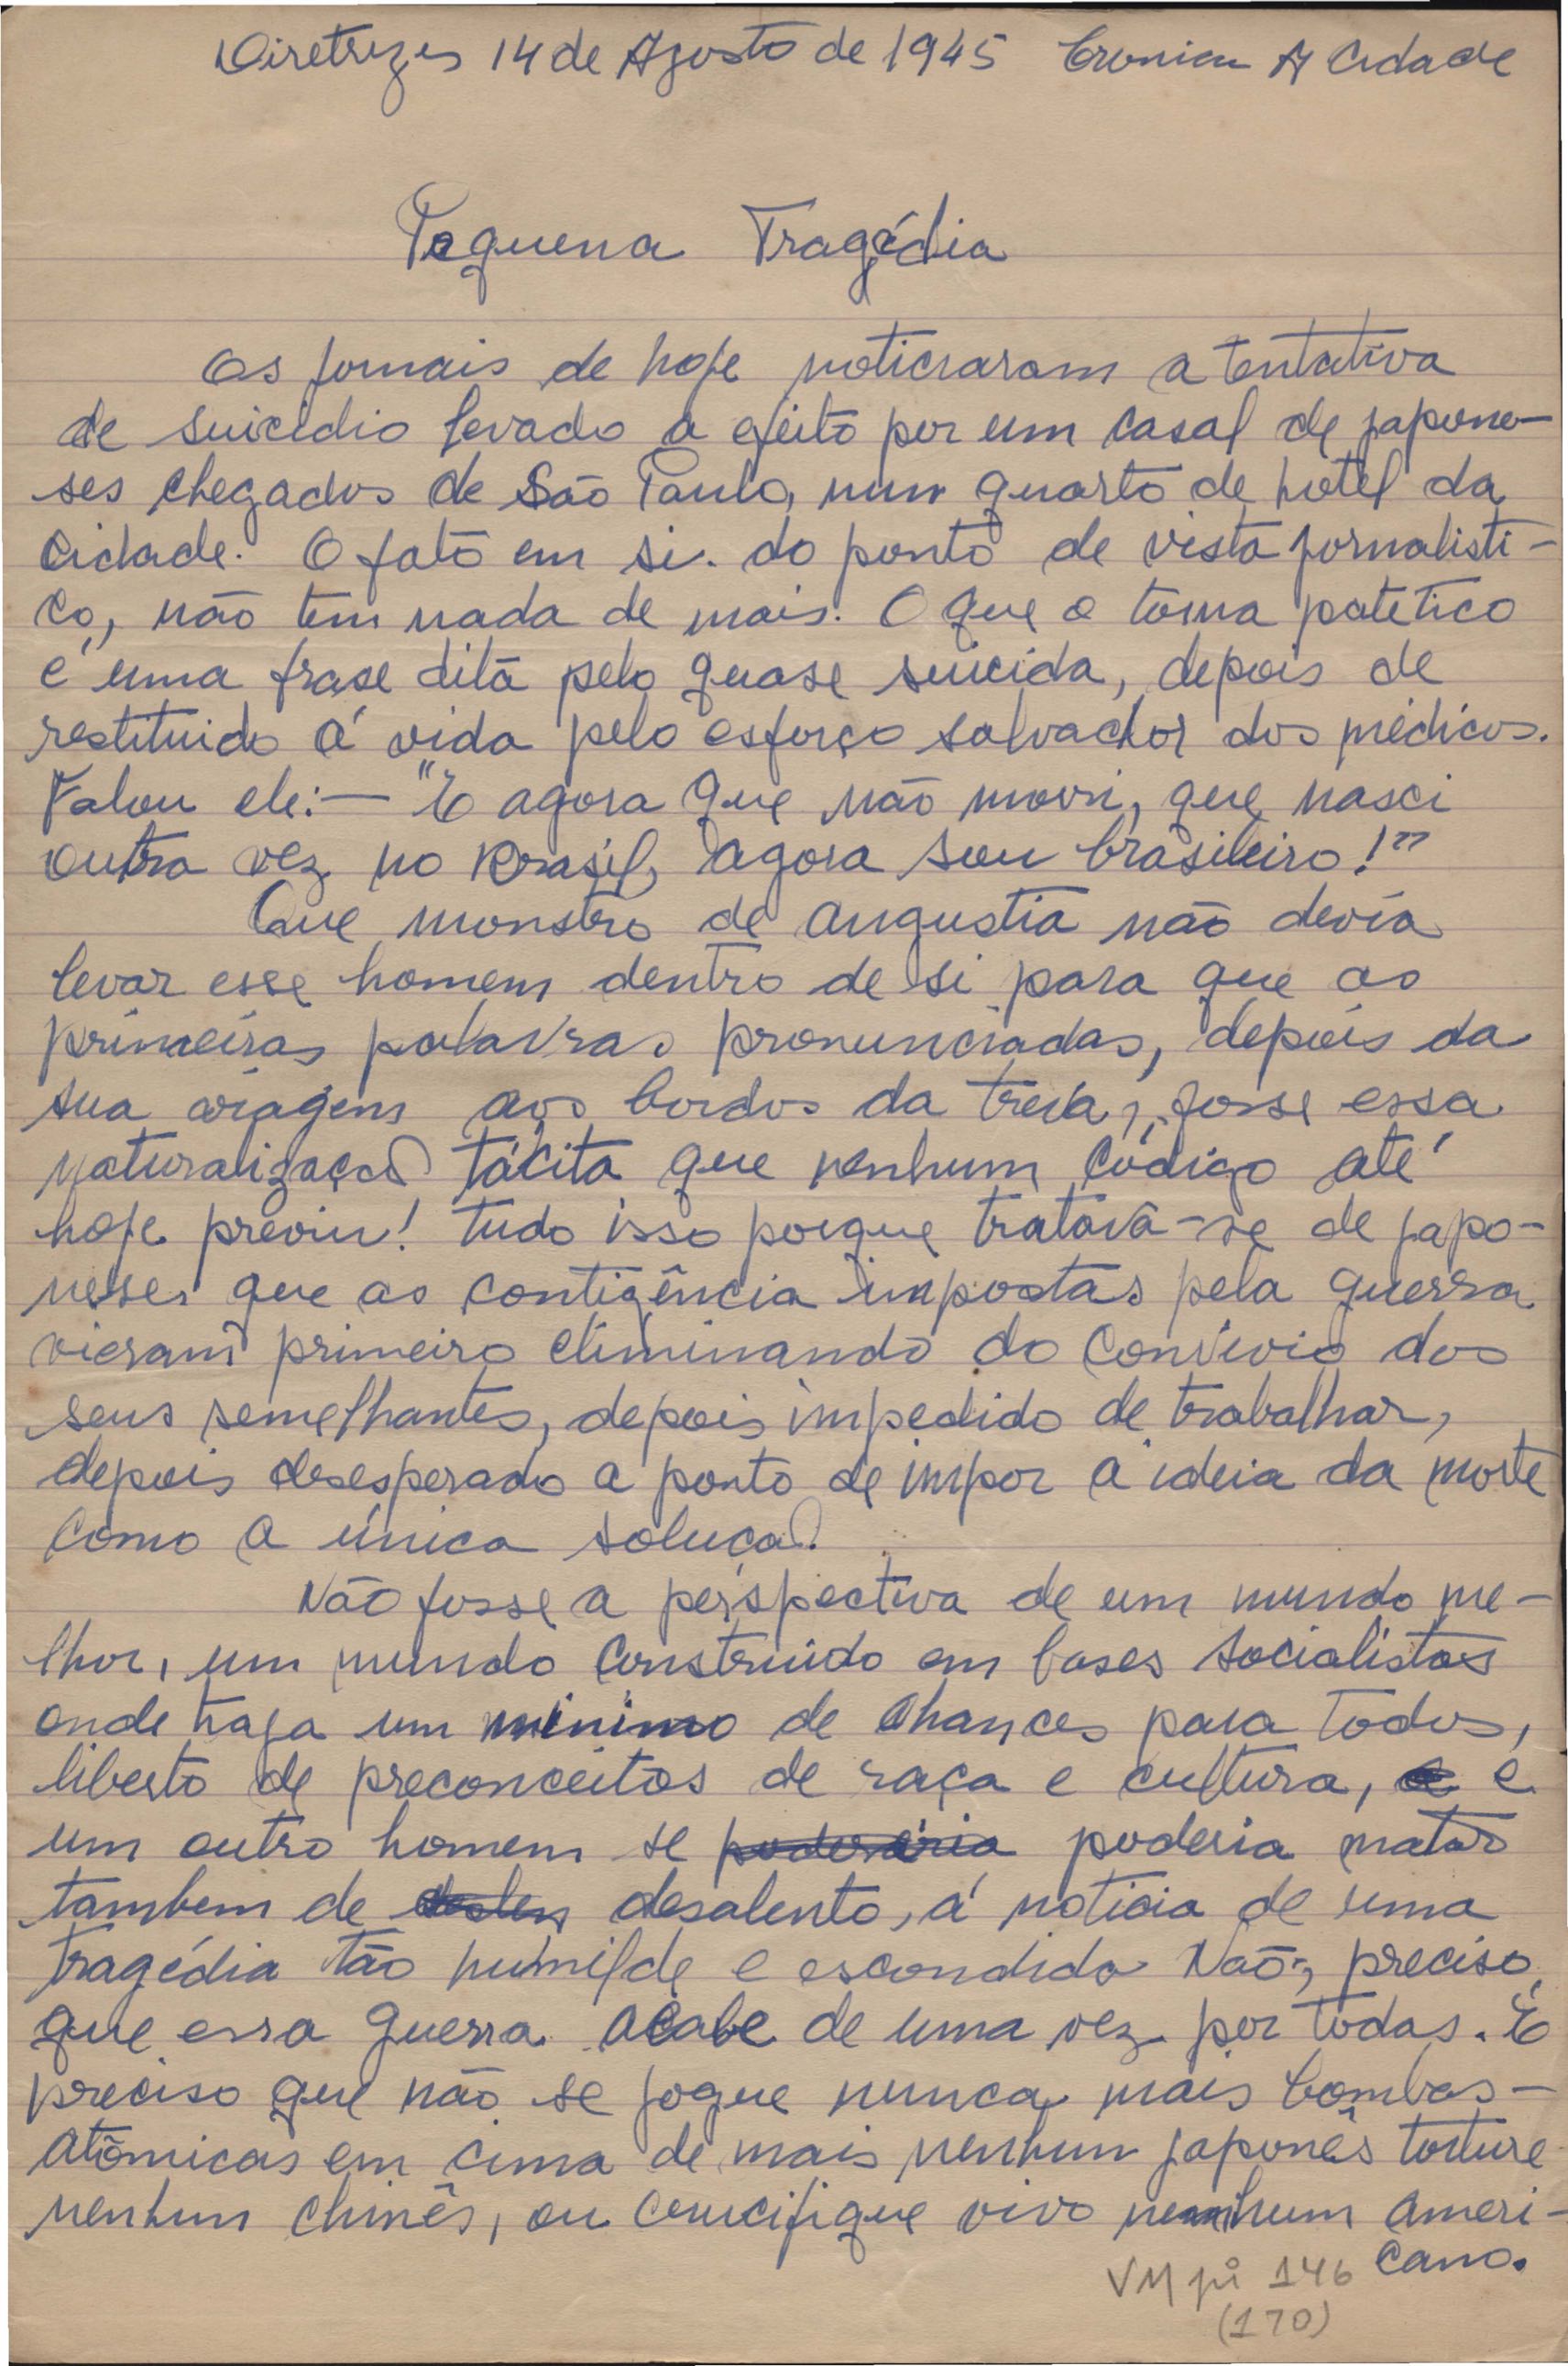 Diretrizes 14 de Agosto de 1945 Cronica A Cidade
Pequena Tragédia
Os jornais de hoje noticiaram a tentativa
de suicidio levado a efeito por um casal de japone-
ses chegados de São Paulo, num quarto de hotel da
cidade. O fato em si. do ponto de vista jornalisti-
co, não tem nada de mais. O que o torna patetico
é uma frase dita pelo quase suicida, depois de
restituido á vida pelo esforço salvador dos médicos.
Falou ele: — "E agora que não morri, que nasci
outra vez no Brasil, agora sou brasileiro!"
Que monstro de angustia não devia
levar esse homem dentro de si para que as
primeiras palavras pronunciadas, depois da
sua viagem aos bordos da treva, fosse essa
naturalização tácita que nenhum código até
hoje previu! tudo isso porque tratava-se de japo-
neses que as contigência impostas pela guerra
vieram primeiro eliminando do convivio dos
seus semelhantes, depois impedido de trabalhar,
depois desesperado a ponto de impor a ideia da morte
como a única solução.
Não fosse a perspectiva de um mundo me-
lhor, um mundo construido em bases socialistas
onde haja um minimo de chances para todos,
liberto de preconceitos de raça e cultura, e
um outro homem se poderia matar
tambem de desalento, á noticia de uma
tragédia tão humilde e escondida Não, preciso
que essa guerra acabe de uma vez por todas. É
preciso que não se jogue nunca mais bombas-
atômicas em cima de mais nenhum japonês torture
nenhum chinês, ou crucifique vivo nenhum ameri-
cano.
VM pi 146
(170)